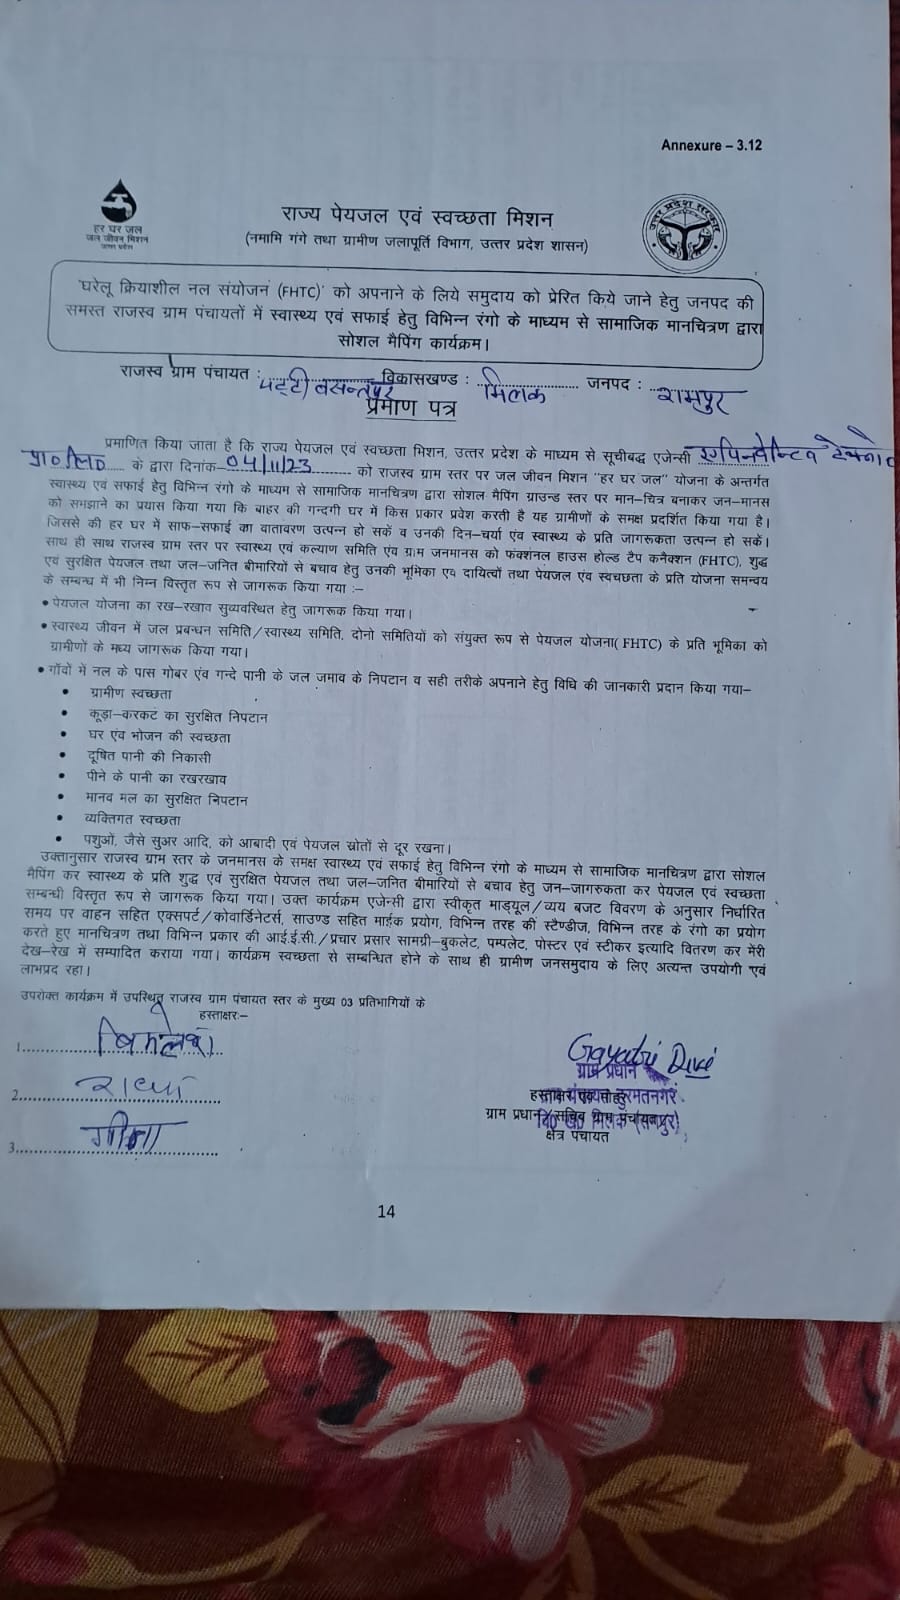 Annexure – 3.12
हर घर जल
जल जीवन मिशन
उत्तर प्रदेश
उत्तर प्रदेश सरकार
राज्य पेयजल एवं स्वच्छता मिशन
(नमामि गंगे तथा ग्रामीण जलापूर्ति विभाग, उत्तर प्रदेश शासन)
'घरेलू क्रियाशील नल संयोजन (FHTC)' को अपनाने के लिये समुदाय को प्रेरित किये जाने हेतु जनपद की
समस्त राजस्व ग्राम पंचायतों में स्वास्थ्य एवं सफाई हेतु विभिन्न रंगो के माध्यम से सामाजिक मानचित्रण द्वारा
सोशल मैपिंग कार्यक्रम।
राजस्व ग्राम पंचायत : पट्टी बसन्तपुर विकासखण्ड : मिलक जनपद : रामपुर
प्रमाण पत्र
प्रमाणित किया जाता है कि राज्य पेयजल एवं स्वच्छता मिशन, उत्तर प्रदेश के माध्यम से सूचीबद्ध एजेन्सी
प्रा० लि० के द्वारा दिनांक- 04/11/23 को राजस्व ग्राम स्तर पर जल जीवन मिशन "हर घर जल" योजना के अन्तर्गत
स्वास्थ्य एवं सफाई हेतु विभिन्न रंगो के माध्यम से सामाजिक मानचित्रण द्वारा सोशल मैपिंग ग्राउन्ड स्तर पर मान-चित्र बनाकर जन-मानस
को समझाने का प्रयास किया गया कि बाहर की गन्दगी घर में किस प्रकार प्रवेश करती है यह ग्रामीणों के समक्ष प्रदर्शित किया गया है।
जिससे की हर घर में साफ-सफाई का वातावरण उत्पन्न हो सकें व उनकी दिन-चर्या एंव स्वास्थ्य के प्रति जागरूकता उत्पन्न हो सकें।
साथ ही साथ राजस्व ग्राम स्तर पर स्वास्थ्य एवं कल्याण समिति एंव ग्राम जनमानस को फंक्शनल हाउस होल्ड टैप कनैक्शन (FHTC), शुद्ध
एवं सुरक्षित पेयजल तथा जल-जनित बीमारियों से बचाव हेतु उनकी भूमिका एवं दायित्वों तथा पेयजल एंव स्वच्छता के प्रति योजना समन्वय
के सम्बन्ध में भी निम्न विस्तृत रूप से जागरूक किया गया :–
• पेयजल योजना का रख-रखाव सुव्यवस्थित हेतु जागरूक किया गया।
• स्वास्थ्य जीवन में जल प्रबन्धन समिति/स्वास्थ्य समिति, दोनो समितियों को संयुक्त रूप से पेयजल योजना( FHTC) के प्रति भूमिका को
ग्रामीणों के मध्य जागरूक किया गया।
• गाँवों में नल के पास गोबर एंव गन्दे पानी के जल जमाव के निपटान व सही तरीके अपनाने हेतु विधि की जानकारी प्रदान किया गया–
• ग्रामीण स्वच्छता
• कूड़ा-करकट का सुरक्षित निपटान
• घर एंव भोजन की स्वच्छता
• दूषित पानी की निकासी
• पीने के पानी का रखरखाव
• मानव मल का सुरक्षित निपटान
• व्यक्तिगत स्वच्छता
• पशुओं, जैसे सुअर आदि, को आबादी एवं पेयजल स्रोतों से दूर रखना।
उक्तानुसार राजस्व ग्राम स्तर के जनमानस के समक्ष स्वास्थ्य एवं सफाई हेतु विभिन्न रंगो के माध्यम से सामाजिक मानचित्रण द्वारा सोशल
मैपिंग कर स्वास्थ्य के प्रति शुद्ध एवं सुरक्षित पेयजल तथा जल-जनित बीमारियों से बचाव हेतु जन-जागरुकता कर पेयजल एवं स्वच्छता
सम्बन्धी विस्तृत रूप से जागरूक किया गया। उक्त कार्यक्रम एजेन्सी द्वारा स्वीकृत माड्यूल/व्यय बजट विवरण के अनुसार निर्धारित
समय पर वाहन सहित एक्सपर्ट/कोवार्डिनेटर्स, साउण्ड सहित माईक प्रयोग, विभिन्न तरह की स्टैण्डीज, विभिन्न तरह के रंगो का प्रयोग
करते हुए मानचित्रण तथा विभिन्न प्रकार की आई.ई.सी./प्रचार प्रसार सामग्री-बुकलेट, पम्पलेट, पोस्टर एवं स्टीकर इत्यादि वितरण कर मेरी
देख-रेख में सम्पादित कराया गया। कार्यक्रम स्वच्छता से सम्बन्धित होने के साथ ही ग्रामीण जनसमुदाय के लिए अत्यन्त उपयोगी एवं
लाभप्रद रहा।
उपरोक्त कार्यक्रम में उपस्थित राजस्व ग्राम पंचायत स्तर के मुख्य 03 प्रतिभागियों के
हस्ताक्षर:–
1. बिमलेश
2. राधा
3. गीता
Gayatri Devi
ग्राम प्रधान
हस्ताक्षर एवं मोहर
ग्राम प्रधान/सचिव ग्राम पंचायत
क्षेत्र पंचायत
14